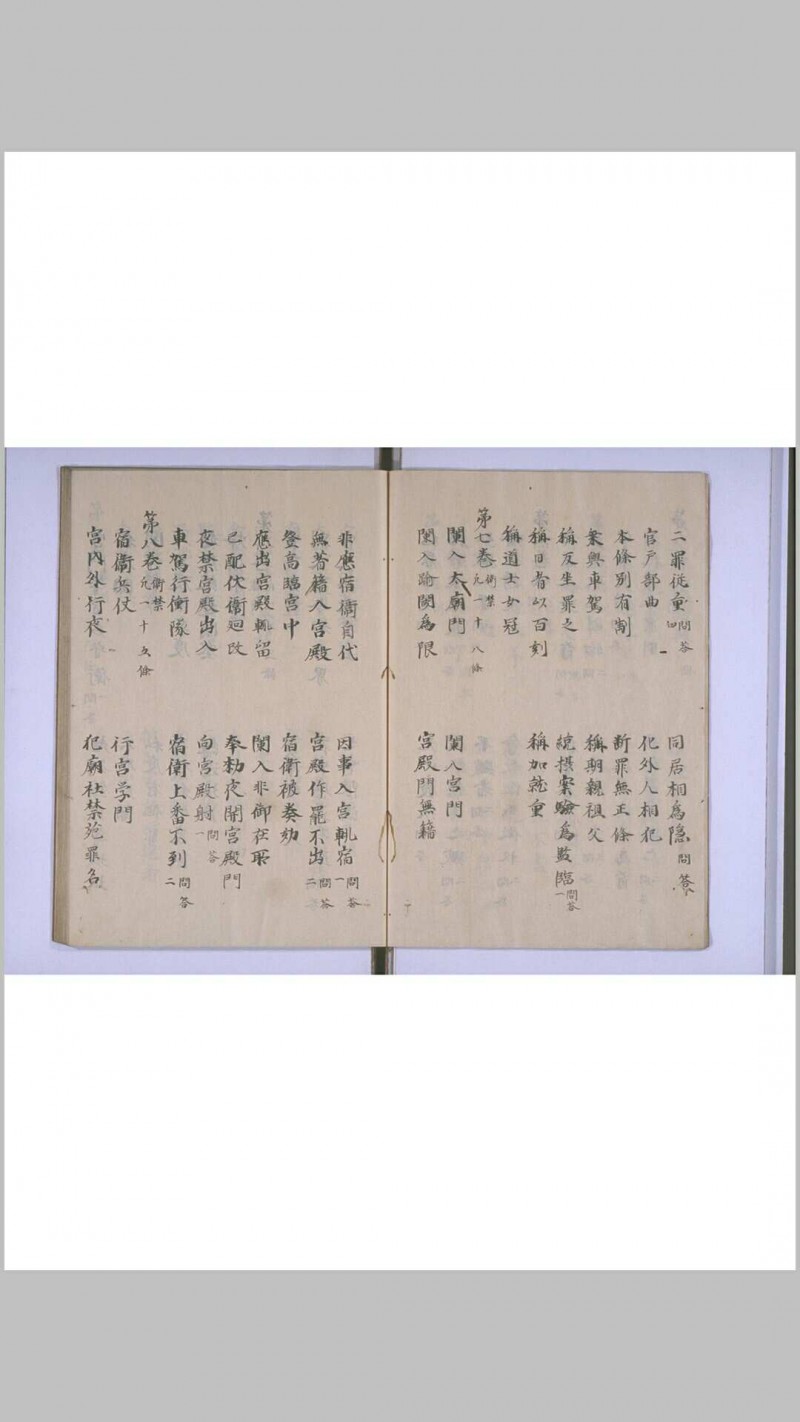 二罪従重 問答四 同居相為隠 問答
官戸部曲 化外人相犯
本條別有制 断罪無正條
乗輿車駕 稱期親祖父
稱反坐罪之 統摂案驗為監臨 問答一
稱日者以百刻 稱加就重
稱道士女冠
第七巻 衛禁 凡一十八條
闌入太廟門 闌入宮門
闌入踰閾為限 宮殿門無籍
非應宿衛自代 因事入宮輒宿 問答一
無著籍入宮殿 宮殿作罷不出 問答二
登高臨宮中 宿衛被奏劾
應出宮殿輒留 闌入非御在所
已配仗衛廻改 奉勅夜開宮殿門
夜禁宮殿出入 向宮殿射 問答一
車駕行衝隊 宿衛上番不到 問答二
第八巻 衛禁 凡一十五條
宿衛兵仗 行宮学門
宮内外行夜 犯廟社禁苑罪名